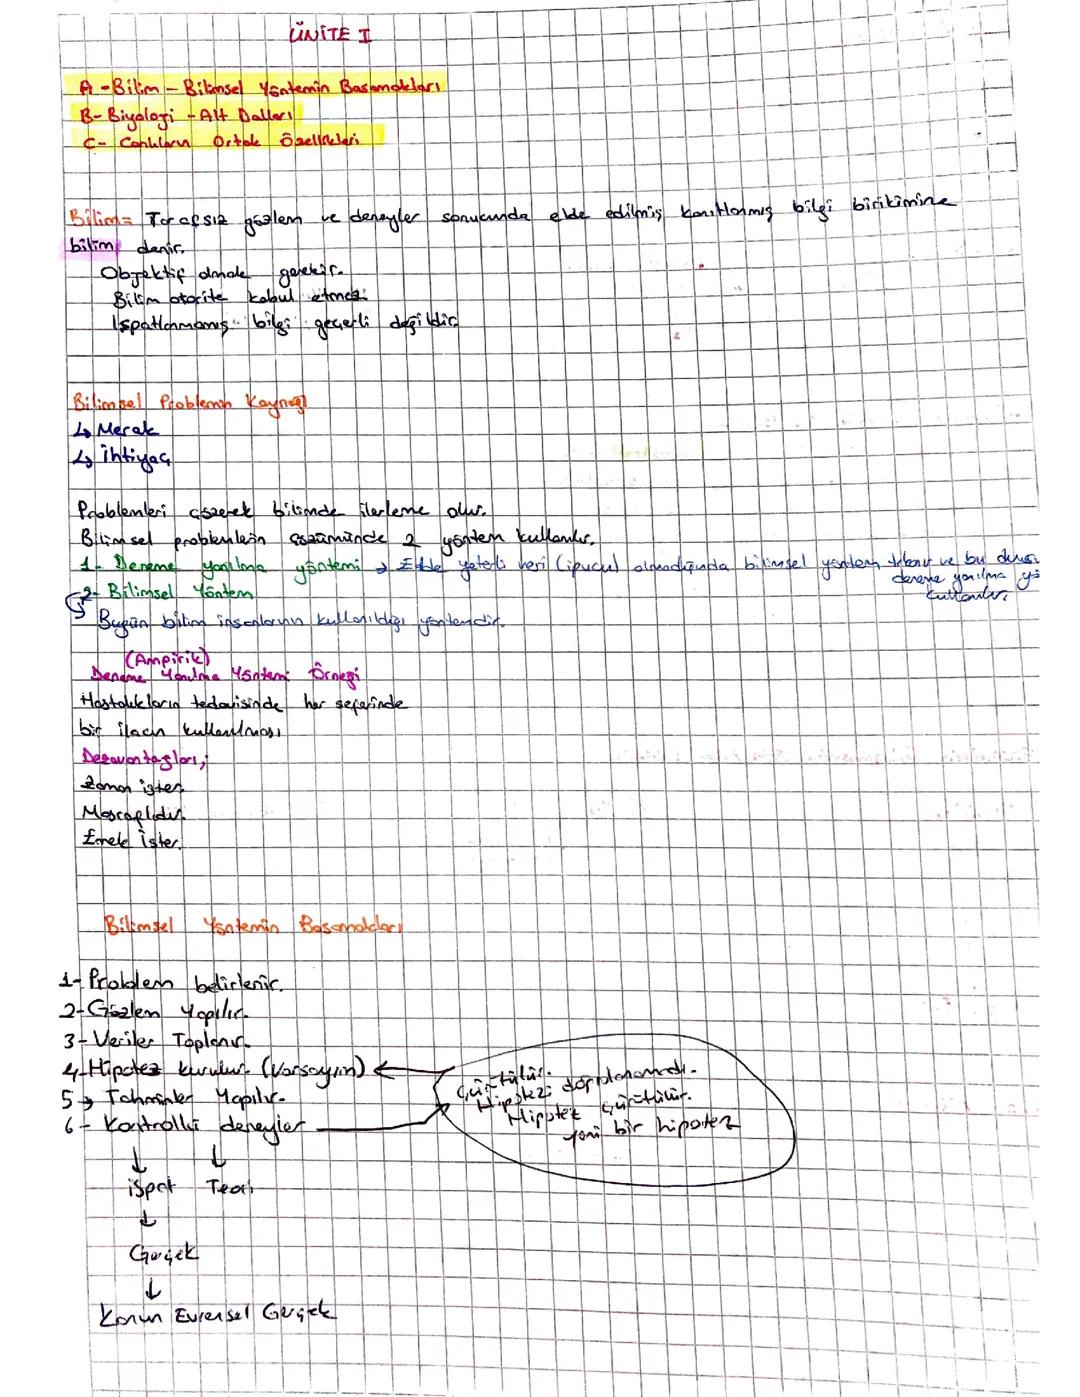 ÜNİTE I
A-Bilim - Bilimsel Yöntemin Basamakları
B- Biyoloji - Alt Dalları
C- Canlıların Ortak Özellikleri
Bilim= Tarafsız gözlem ve deneyler sonucunda elde edilmiş kanıtlanmış bilgi birikimine
bilim denir.
Objektif olmak gerekir.
Bilim otorite kabul etmez.
Ispatlanmamış bilgi geçerli değildir.
Bilimsel Problemin Kaynağı
↳ Merak
↳ İhtiyaç
Problemleri çözerek bilimde ilerleme olur.
Bilimsel problemlerin çözümünde 2 yöntem kullanılır.
1- Deneme yanılma yöntemi → Elde yeterli veri (ipucu) olmadığında bilimsel yöntem ve bu
deneme yanılma yö
kullanılır.
2- Bilimsel Yöntem
Bugün bilim insanlarının kullanıldığı yöntemdir.
(Ampirik)
Deneme Yanılma Yöntemi Örneği
Hastalıkların tedavisinde her seferinde
bir ilacın kullanılması
Dezavantajları;
Zaman ister.
Masraflıdır.
Emek İster.
Bilimsel Yöntemin Basamakları
1- Problem belirlenir.
2- Gözlem Yapılır.
3- Veriler Toplanır.
4- Hipotez kurulur. (Varsayım)
5→ Tahminler Yapılır.
6- Kontrollü deneyler
Çürütülür.
Hipotezi doğrulanamadı.
Hipotez çürütülür.
yeni bir hipotez
↓ ↓
İspat Teori
↓
Gerçek
↓
Kanun Evrensel Gerçek